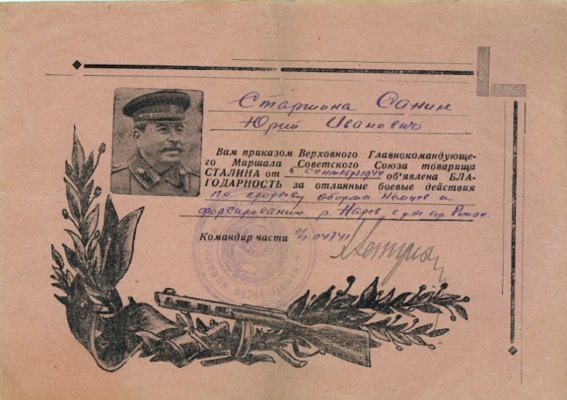 Старшина Санин
Юрий Иванович
Вам приказом Верховного Главнокомандующе-
го Маршала Советского Союза товарища
СТАЛИНА от 6 сентября 1944 об'явлена БЛА-
ГОДАРНОСТЬ за отличные боевые действия
по прорыву обороны немцев и
форсированию р. Нарев, в р-не гор. Рожан.
Командир части п/п 04741
полевая 04741 почта